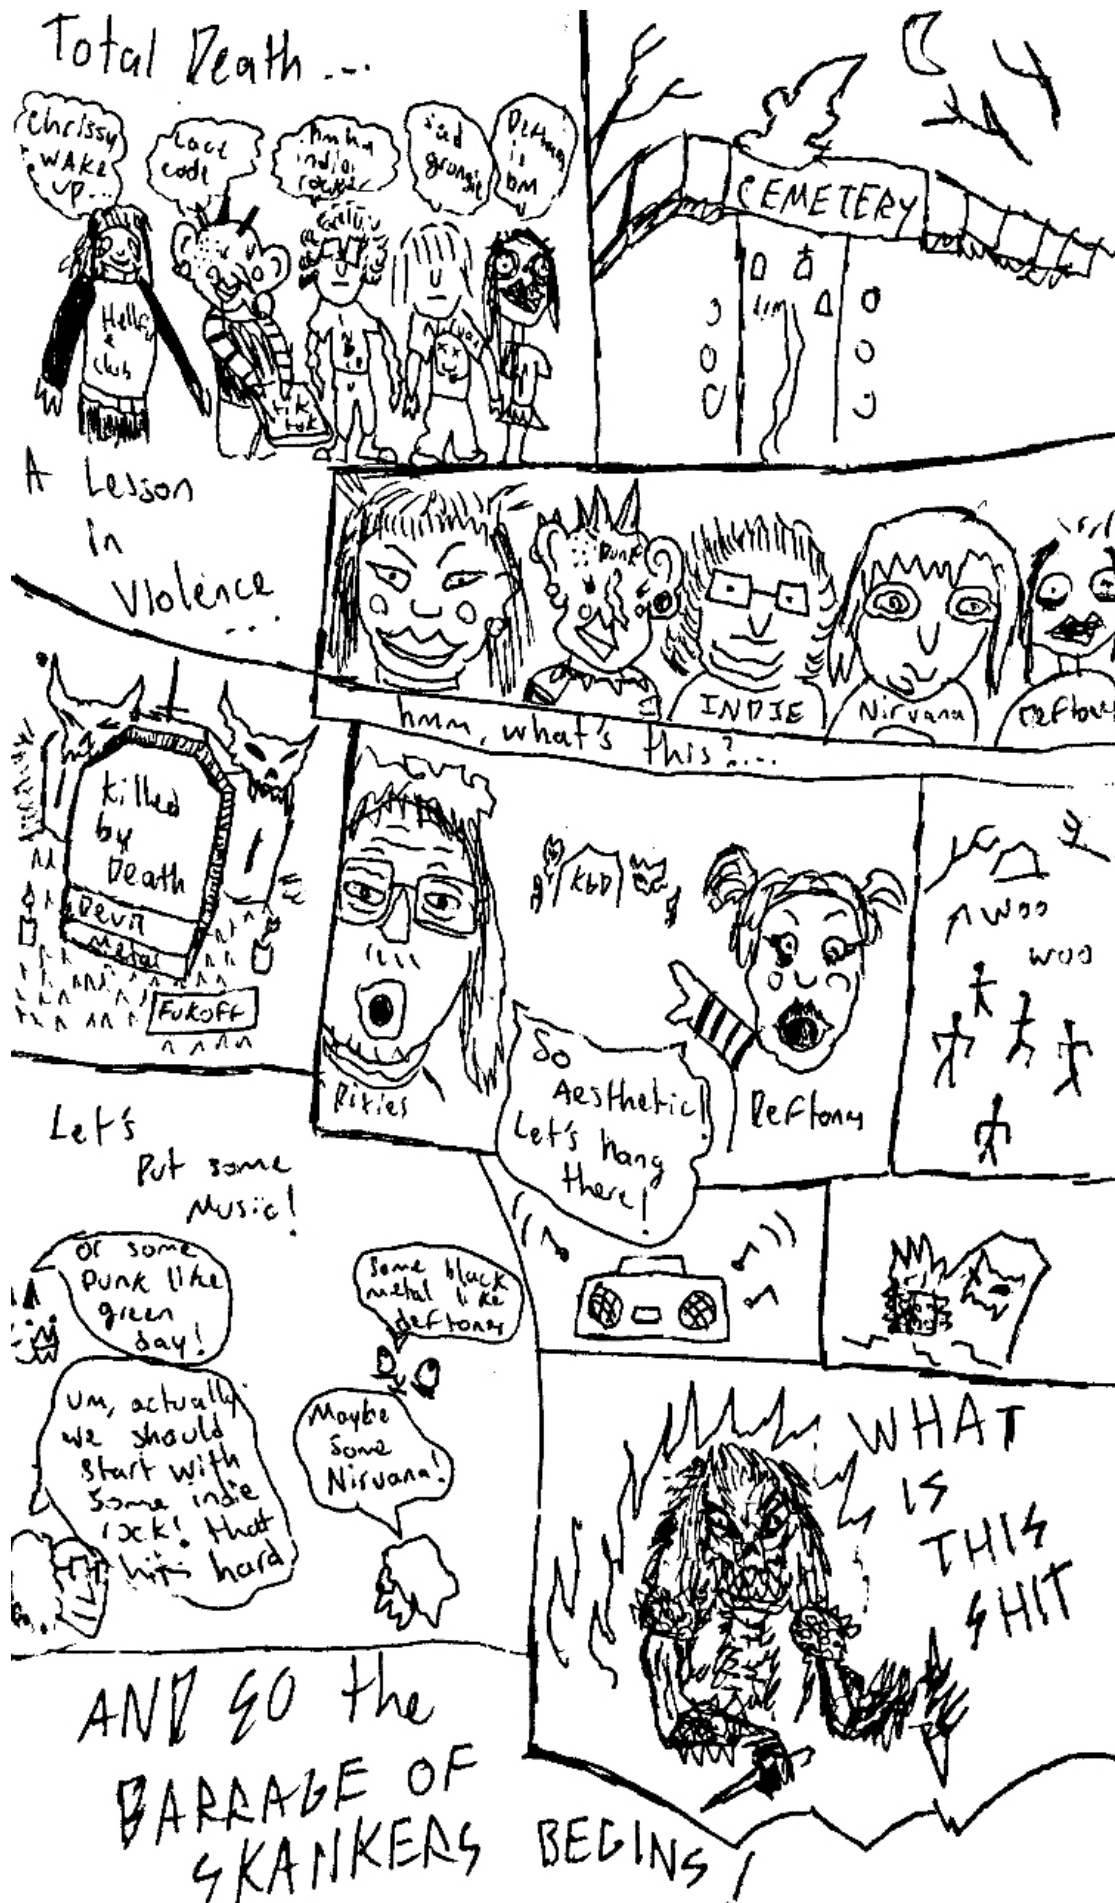 Total Death...
Chrissy
WAKE
UP...
Lace
code
hmhm
indie
rocker
sad
grunge
Deftones
is
bm
Hellfire
club
tik
tok
INDIE
Nirvana
A Lesson
in
Violence
...
CEMETERY
Punk
INDIE
Nirvana
Deftones
hmm, what's this?...
Killed
by
Death
Devil
Metal
FUKOFF
KBD
Pixies
Deftones
So
Aesthetic!
Let's hang
there!
WOO
WOO
Let's
Put some
Music!
Or some
Punk like
green
day!
Some black
metal like
deftones
um, actually
we should
start with
some indie
rock! that
hits hard
Maybe
Some
Nirvana!
WHAT
IS
THIS
SHIT
AND SO the
BARRAGE OF
SKANKERS BEGINS!